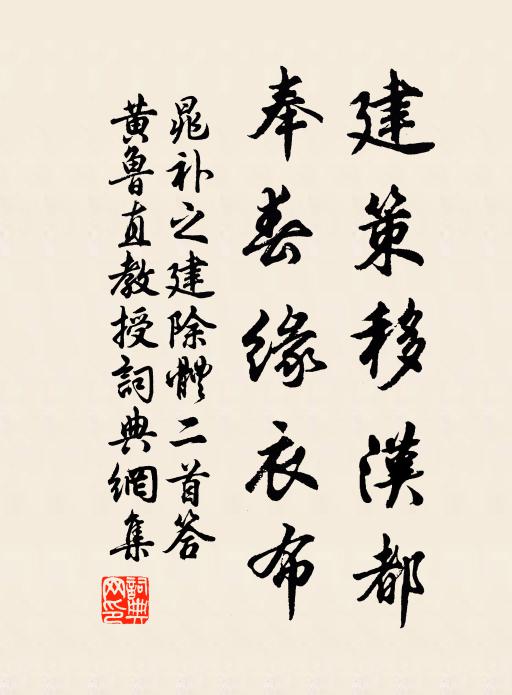 建策移漢都
奉春緣衣布
晁补之建除體二首答
黄魯直教授詞典網集
詞典网印